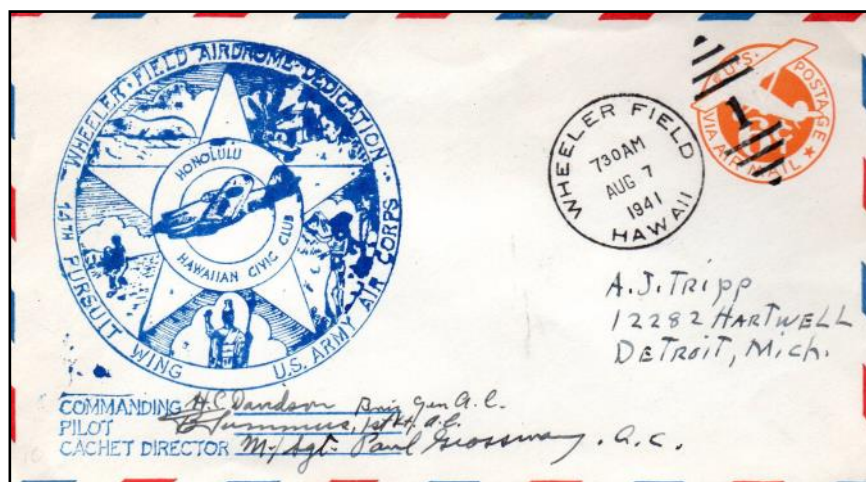 WHEELER FIELD AIRDROME DEDICATION
14TH PURSUIT WING
U.S. ARMY AIR CORPS
HONOLULU
HAWAIIAN CIVIC CLUB
WHEELER FIELD
730AM
AUG 7
1941
HAWAII
U.S. POSTAGE
VIA AIR MAIL
1
A.J. TRIPP
12282 HARTWELL
DETROIT, MICH.
COMMANDING H.C. Davidson Brig Gen A.C.
PILOT 1st Lt. A.C.
CACHET DIRECTOR M/Sgt. Paul A.C.